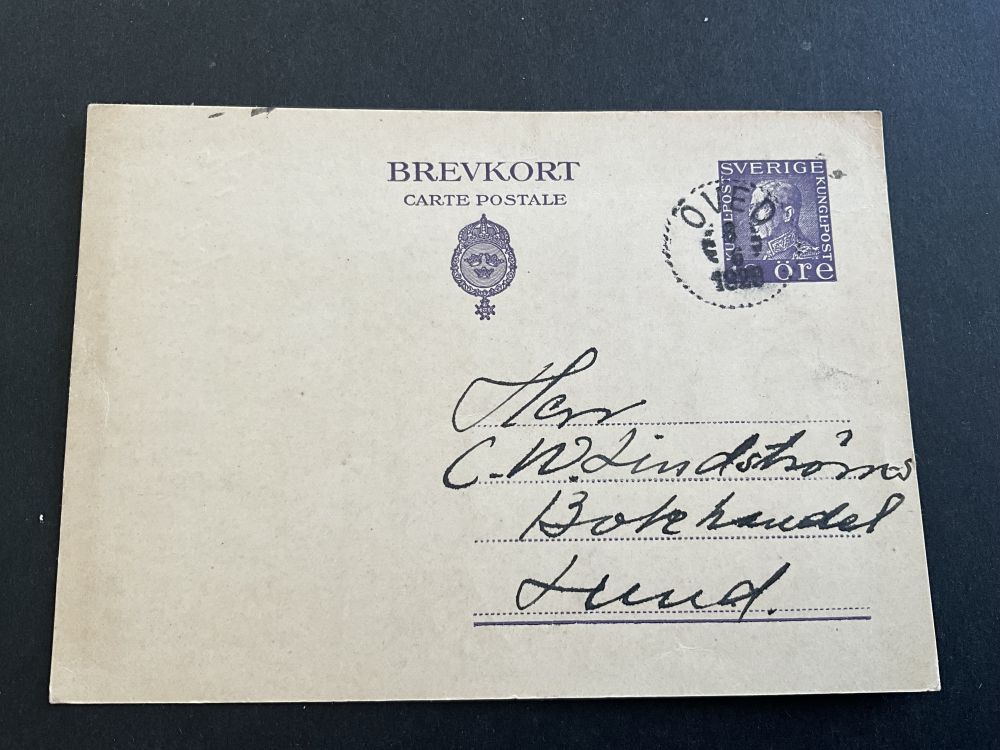 BREVKORT
CARTE POSTALE
SVERIGE
KUNGL-POST
öre
Herr
C. W. Lindströms
Bokhandel
Lund.